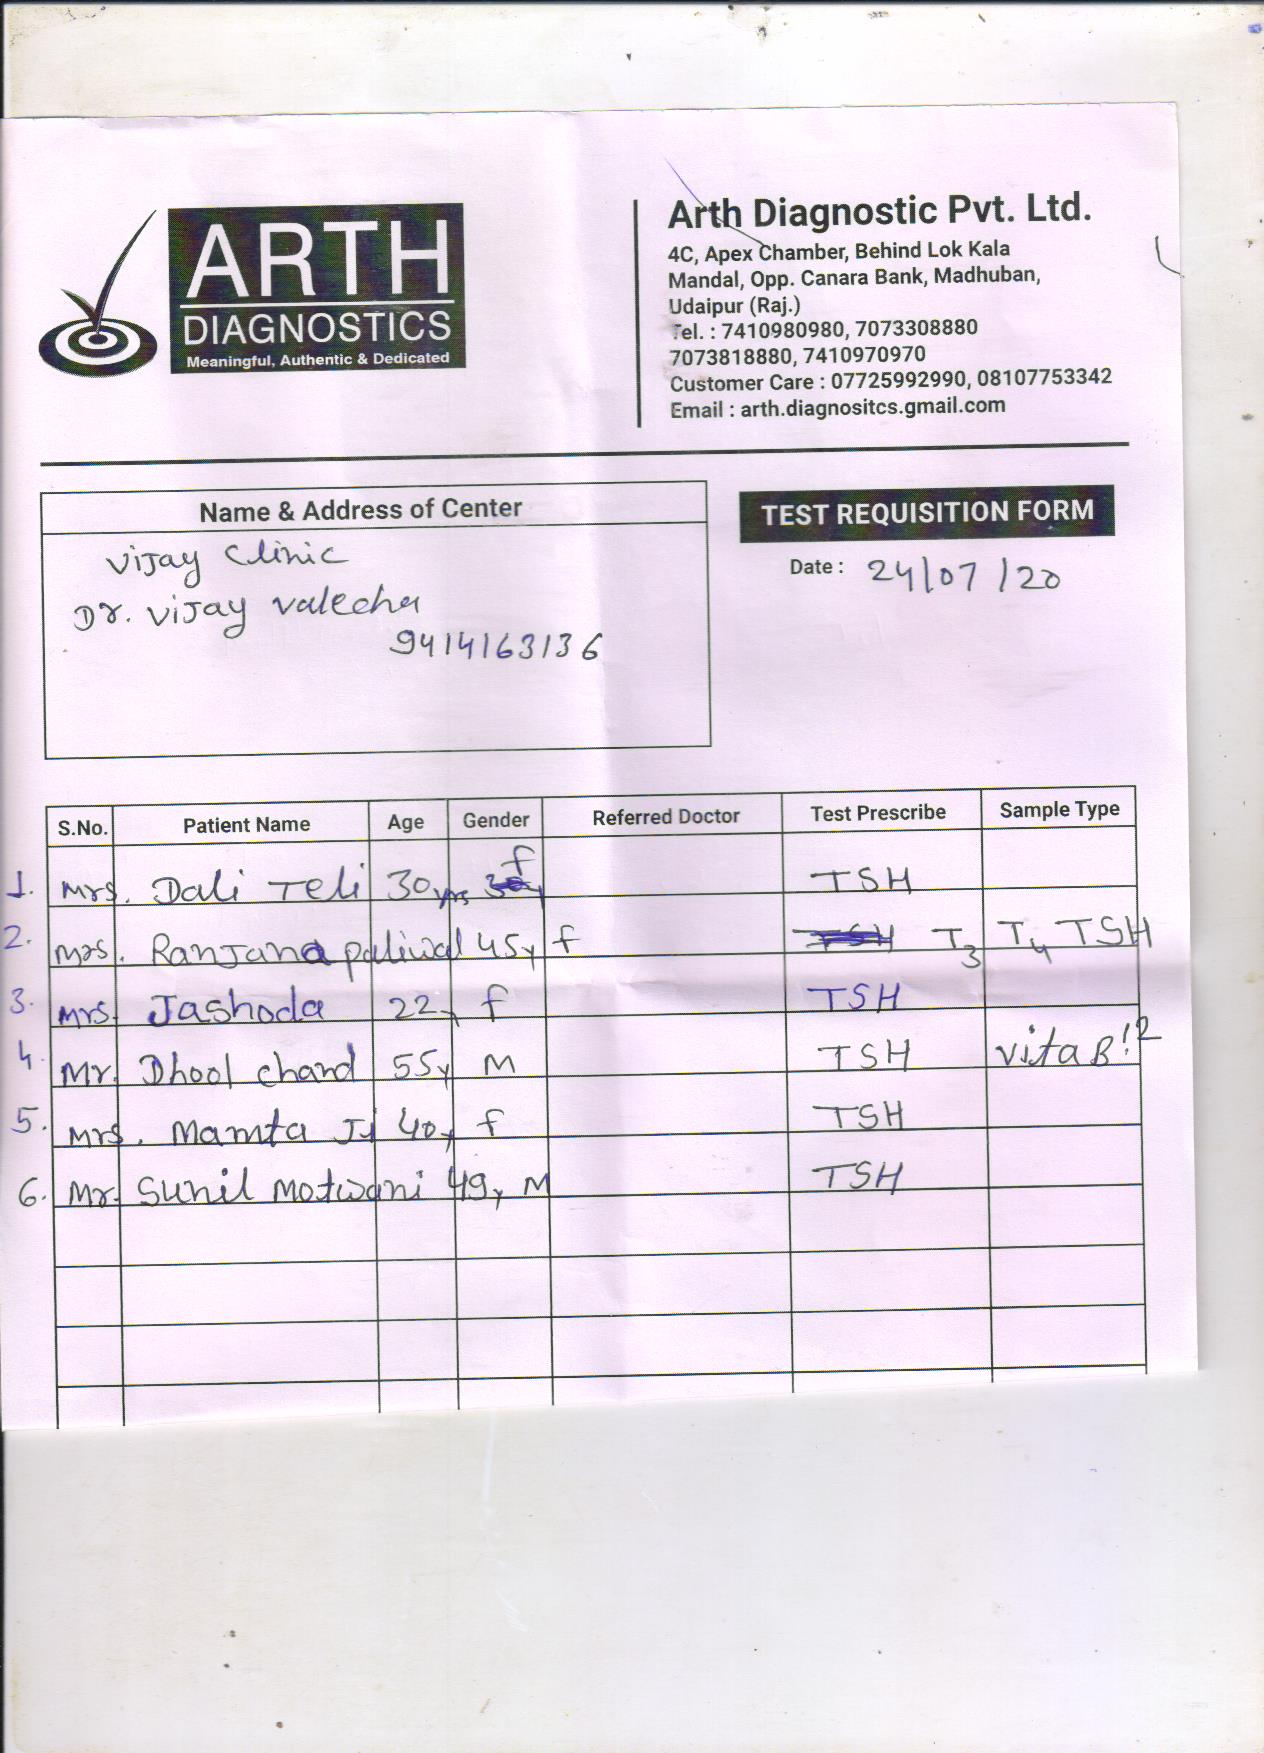 ARTH
DIAGNOSTICS
Meaningful, Authentic & Dedicated
Arth Diagnostic Pvt. Ltd.
4C, Apex Chamber, Behind Lok Kala
Mandal, Opp. Canara Bank, Madhuban,
Udaipur (Raj.)
Tel. : 7410980980, 7073308880
7073818880, 7410970970
Customer Care : 07725992990, 08107753342
Email : arth.diagnositcs.gmail.com
Name & Address of Center
Vijay Clinic
Dr. Vijay Valecha
9414163136
TEST REQUISITION FORM
Date : 24/07/20
S.No. Patient Name Age Gender Referred Doctor Test Prescribe Sample Type
1. Mrs. Dali Teli 30yrs f TSH
2. Mrs. Ranjana paliwal 45y f T3 T4 TSH
3. Mrs. Jashoda 22y f TSH
4. Mr. Dhool chand 55y M TSH Vita B12
5. Mrs. Mamta Ji 40y f TSH
6. Mr. Sunil Motwani 49y M TSH